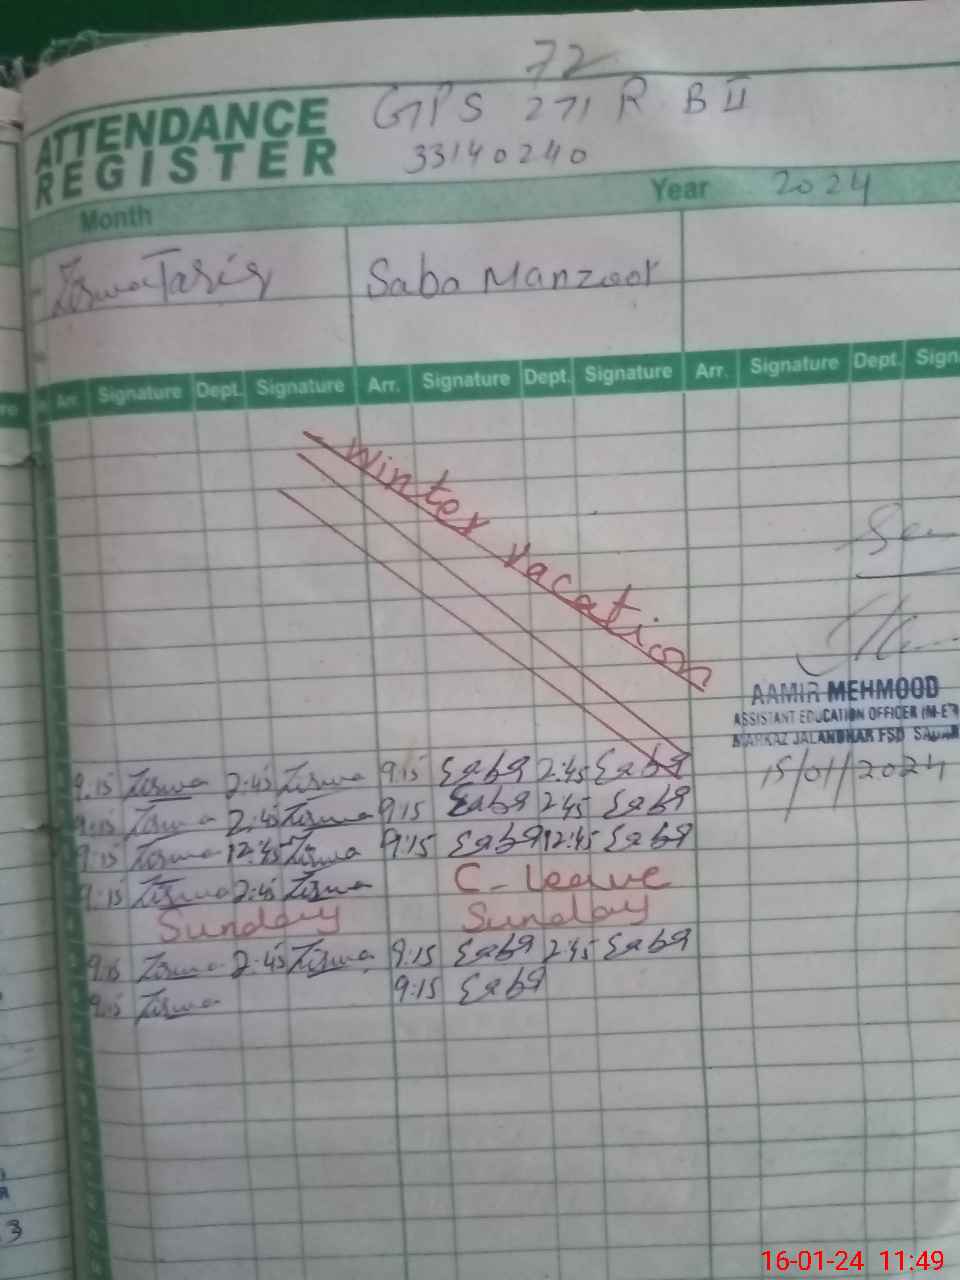 72
ATTENDANCE GPS 271 R B II
REGISTER 33140240
Month Year 2024
Tariq Saba Manzoor
Arr. Signature Dept. Signature Arr. Signature Dept. Signature Arr. Signature Dept. Sign
Winter vacation
AAMIR MEHMOOD
ASSISTANT EDUCATION OFFICER (M-E)
MARKAZ JALANDHAR FSD SADAR
15/01/2024
9:15 Zoswa 2:45 Zoswa 9:15 Saba 2:45 Saba
9:15 Zoswa 2:45 Zoswa 9:15 Saba 2:45 Saba
9:15 Zoswa 12:45 Zoswa 9:15 Saba 12:45 Saba
9:15 Zoswa 2:45 Zoswa C-Leave
Sunday Sunday
9:15 Zoswa 2:45 Zoswa 9:15 Saba 2:45 Saba
9:15 Zoswa 9:15 Saba
3
16-01-24 11:49